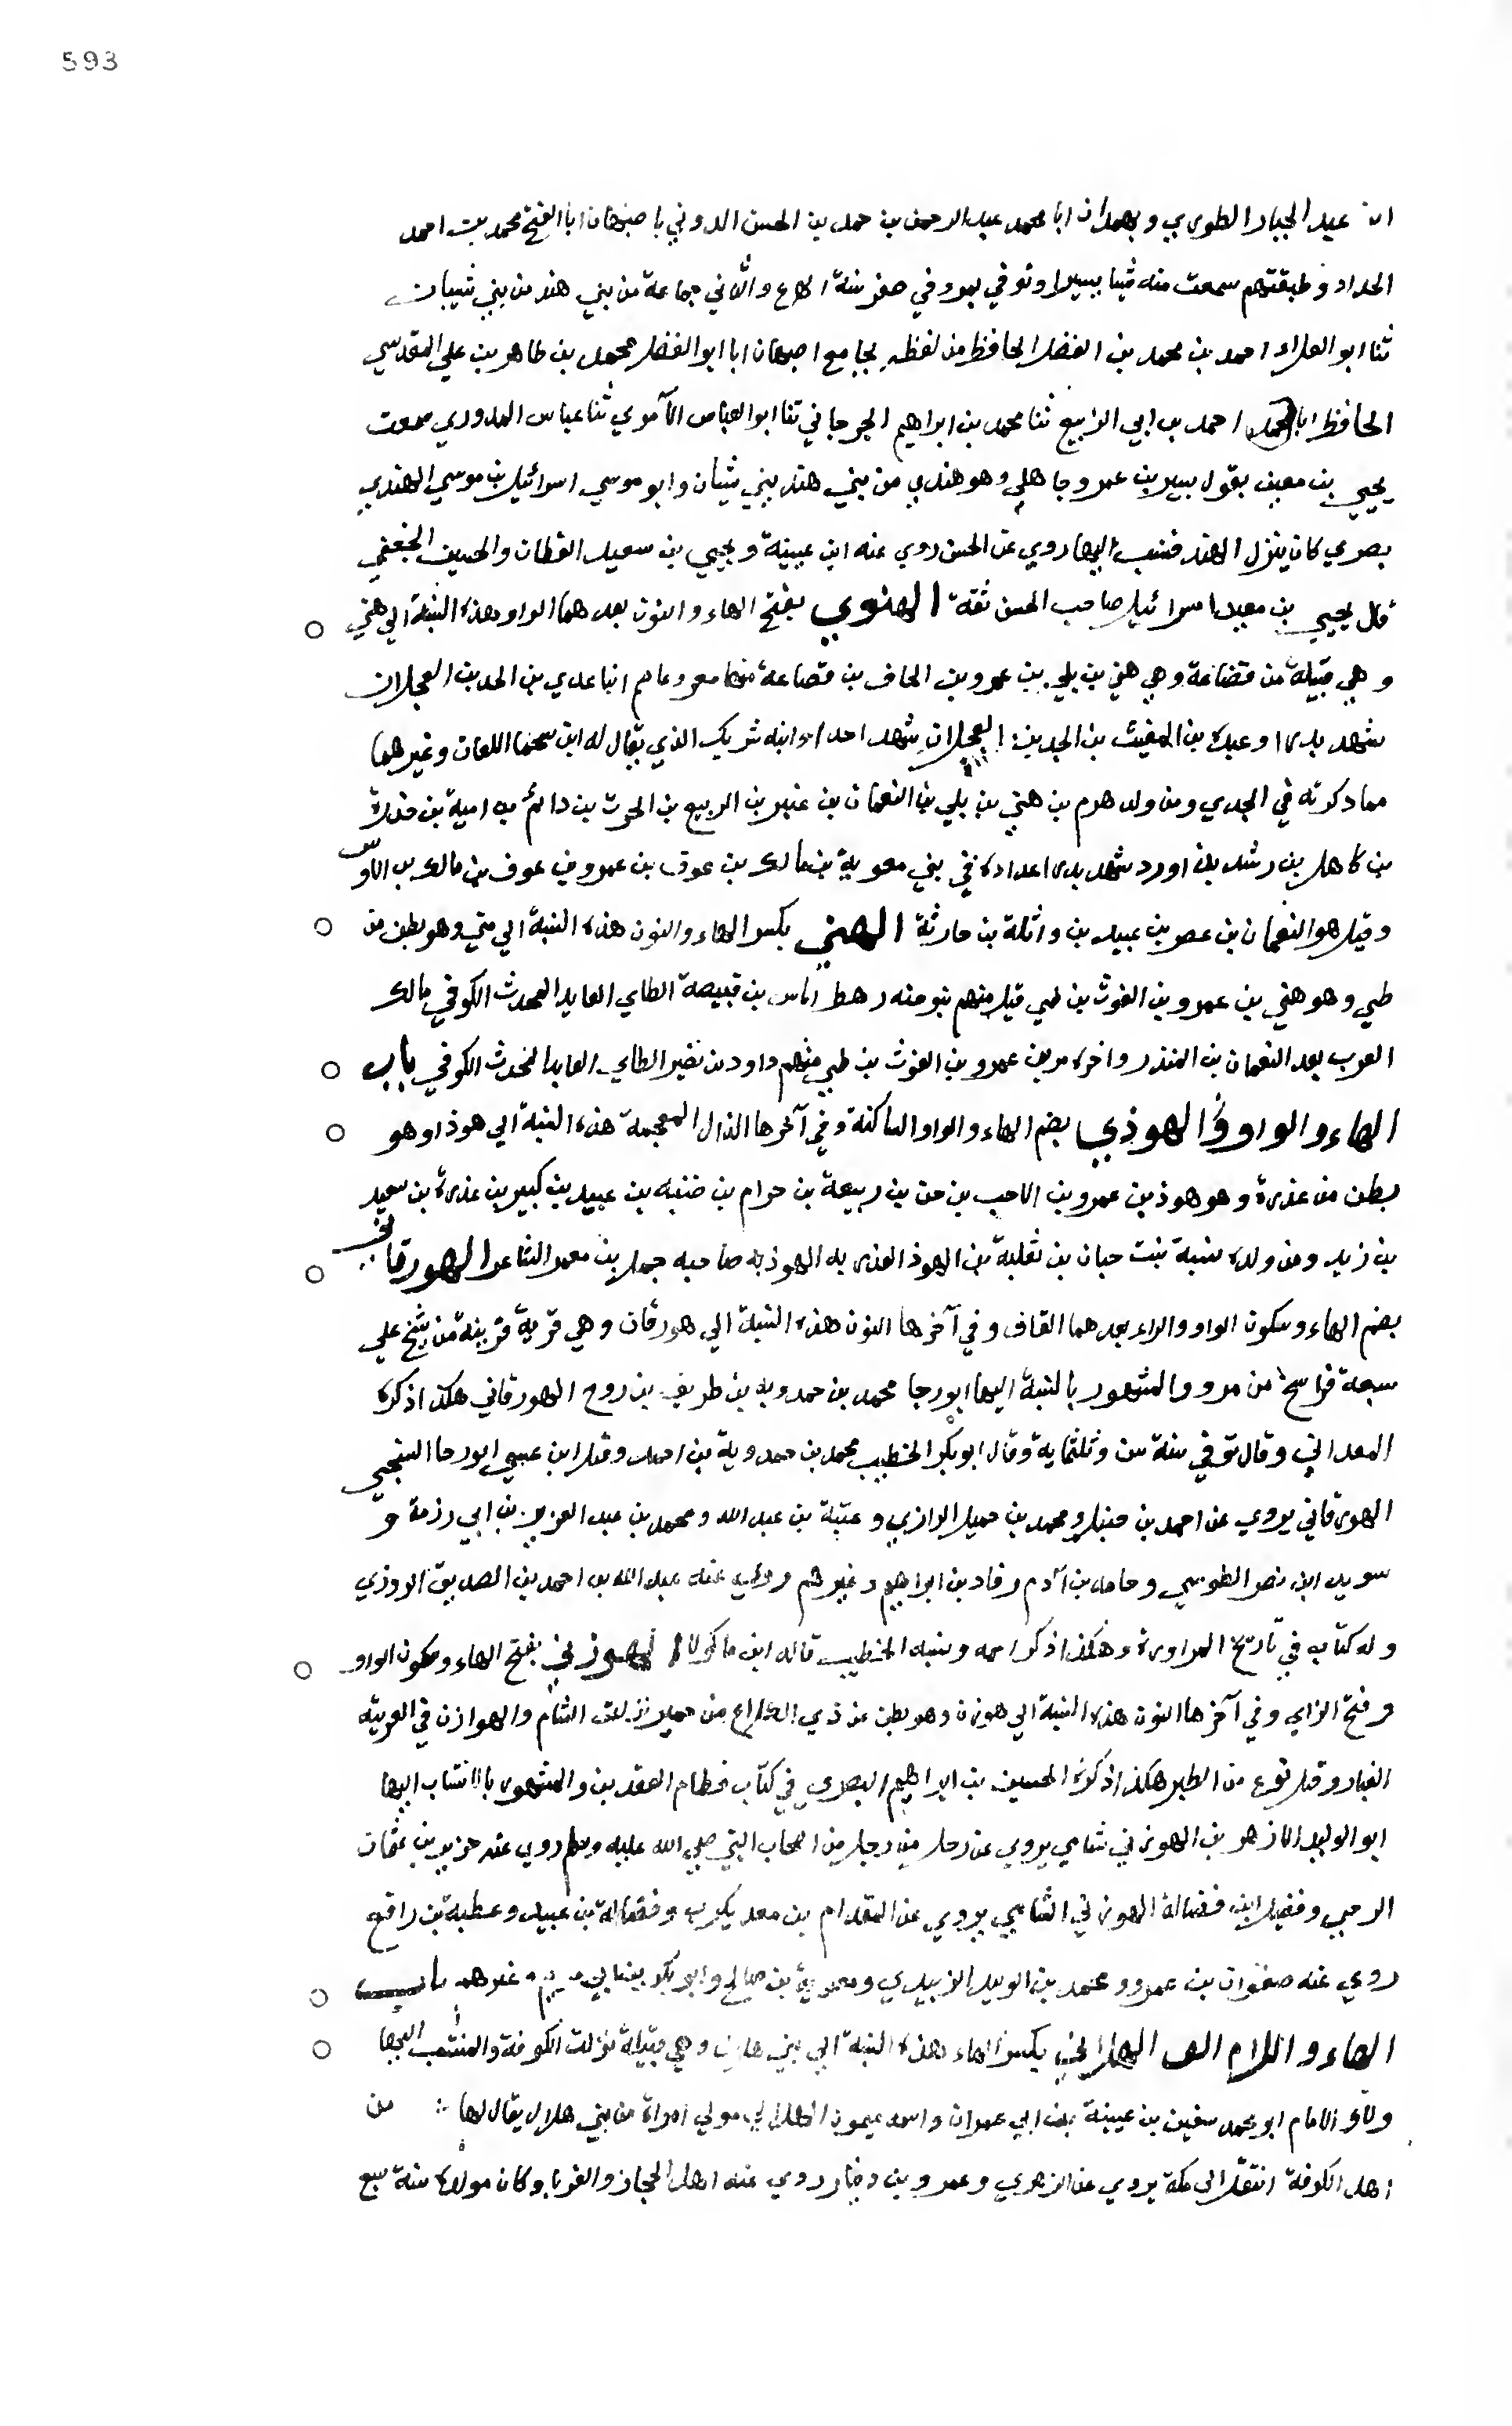 593
ابن عبد الجبار الطوىىى وبهمدان ابا محمد عبد الرحمن بن حمد بن الحسن الدوني باصبهان ابا الفتح محمد بن احمد
الحداد وطبقتهم سمعت منه شيئا يسيرا وتوفي بمرو في صفر سنة والثاني جماعة من بني هند من بني شيبان
ثنا ابو العلاء احمد بن محمد بن الفضل الحافظ من لفظه بجامع اصبهان ابا ابو الفضل محمد بن طاهر بن علي المقدسي
الحافظ ابا محمد احمد بن ابي الربيع ثنا محمد بن ابراهيم الجرجاني ثنا ابو العباس الاموي ثنا عباس الدوري سمعت
يحيي بن معين يقول يسير بن عمرو جاهلي وهو هندي من بني هند بني شيبان وابو موسي اسرائيل بن موسي الهندي
بصري كان ينزل الهند فنسب اليها روي عن الحسن روي عنه ابن عيينة ويحيي بن سعيد القطان والحسين الجعفي
قال يحيي بن معين اسرائيل صاحب الحسن ثقة الهنوي بفتح الهاء والنون بعدهما الواو هذه النسبة الي هني
وهي قبيلة من قضاعة وهي هني بن بلي بن عمرو بن الحاف بن قضاعة منها معن وعاصم ابنا عدي بن الجد بن العجلان
شهد بدرا وعبدة بن المغيث بن الجد بن العجلان شهد احدا وابنه شريك الذي يقال له ابن سحما اللعان وغيرهما
مما ذكرته في الجدي ومن ولد هرم بن هني بن بلي بن النعمان بن عنبر بن الربيع بن الحرث بن دائم بن امية بن خدرة
بن كاهل بن رشد بن اورد شهد بدرا عداده في بني معوية بن مالك بن عوف بن عمرو بن عوف بن مالك بن الاوس
وقيل هو النعمان بن عصر بن عبيد بن واثلة بن حارثة الهني بكسر الهاء والنون هذه النسبة الي هني وهو بطن من
طي وهو هني بن عمرو بن الغوث بن طي قيل منهم بنو منه رهط اياس بن قبيصة الطاي العابد المحدث الكوفي مالك
العرب بعد النعمان بن المنذر واخره مر بن عمرو بن الغوث بن طي منهم داود بن نصير الطاي العابد المحدث الكوفي باب
الهاء والواو الهوذي بضم الهاء والواو الساكنة وفي آخرها الذال المعجمة هذه النسبة الي هوذ او هو
بطن من عذرة وهو هوذ بن عمرو بن الاحب بن حن بن ربيعة بن حرام بن ضنبه بن عبيد بن كبير بن عذرة بن سعيد
بن زيد ومن ولده بثينة بنت حبان بن ثعلبة بن الهوذ العذريه الهوذيه صاحبه جميل بن معمر الشاعر الهورقاني
بضم الهاء وسكون الواو والراء بعدهما القاف وفي آخرها النون هذه النسبة الي هورقان وهي قرية قريبة من سنج علي
سبعة فراسخ من مرو والمشهور بالنسبة اليها ابو رجا محمد بن حمدويه بن طريف بن روح الهورقاني هكذا ذكره
المعداني وقال توفي سنة ست وثلثماية وقال ابو بكر الخطيب محمد بن حمدوية بن احمد وقيل ابن عيسي ابو رجا السنجي
الهورقاني يروي عن احمد بن حنبل ومحمد بن حميد الرازي وعتبة بن عبد الله ومحمد بن عبد العزيز بن ابي رزمة و
سويد ابن نصر الطوسي وحامد بن آدم ورقاد بن ابراهيم وغيرهم وروي عنه عبد الله بن احمد بن الصديق الروزي
وله كتاب في تاريخ المراوزة وهكذا ذكر اسمه ونسبه الخطيب قاله ابن ماكولا الهوزني بفتح الهاء وسكون الواو
وفتح الزاي وفي آخرها النون هذه النسبة الي هوزن وهو بطن من ذي الكلاع من حمير نزلت الشام والهوازن في العربية
الغبار وقيل نوع من الطير هكذا ذكره الحسين بن ابراهيم البصري في كتاب خطام العقدين والمشهور بالانتساب اليها
ابو الوليد الازهر بن الهوزني شامي يروي عن رجل من رجل من اصحاب النبي صلي الله عليه وسلم روي عنه حريز بن عثمان
الرحبي وفضيل ابن فضالة الهوزني الشامي يروي عن المقدام بن معد يكرب وفضالة بن عبيد وعطية بن رافع
روي عنه صفوان بن عمرو ومحمد بن الوليد الزبيدي ومعوية بن صالح وابو بكر بن ابي مريم وغيرهم باب
الهاء واللام الف الهلالي بكسر الهاء هذه النسبة الي بني هلال وهي قبيلة نزلت الكوفة والمنتسب اليها
ولاؤ الامام ابو محمد سفين بن عيينة بن ابي عمران واسمه ميمون الهلالي مولي امراة من بني هلال يقال لها من
اهل الكوفة انتقل الى مكة يروي عن الزهري وعمرو بن دينار روي عنه اهل الحجاز والغربا وكان مولده سنة سبع